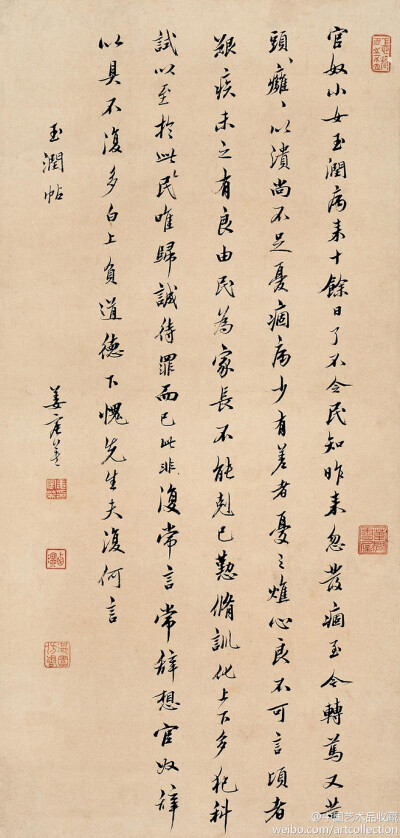 官奴小女玉潤病来十餘日了不令民知昨来忽發痼至今轉篤又苦
頭癰、以潰尚不足憂痼病少有差者憂之燋心良不可言頃者
艱疾未之有良由民為家長不能剋己懃脩訓化上下多犯科
試以至於此民唯歸誠待罪而已此非復常言常辞想官奴辞
以具不復多白上負道德下愧先生夫復何言
玉潤帖
姜宸英
@中国艺术品收藏
weibo.com/artcollection